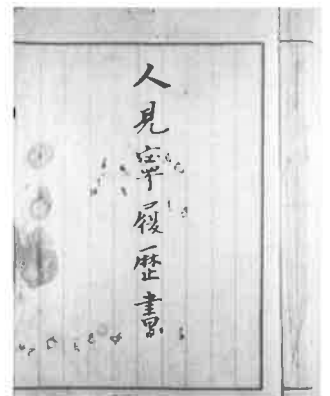 人見寧履歴書